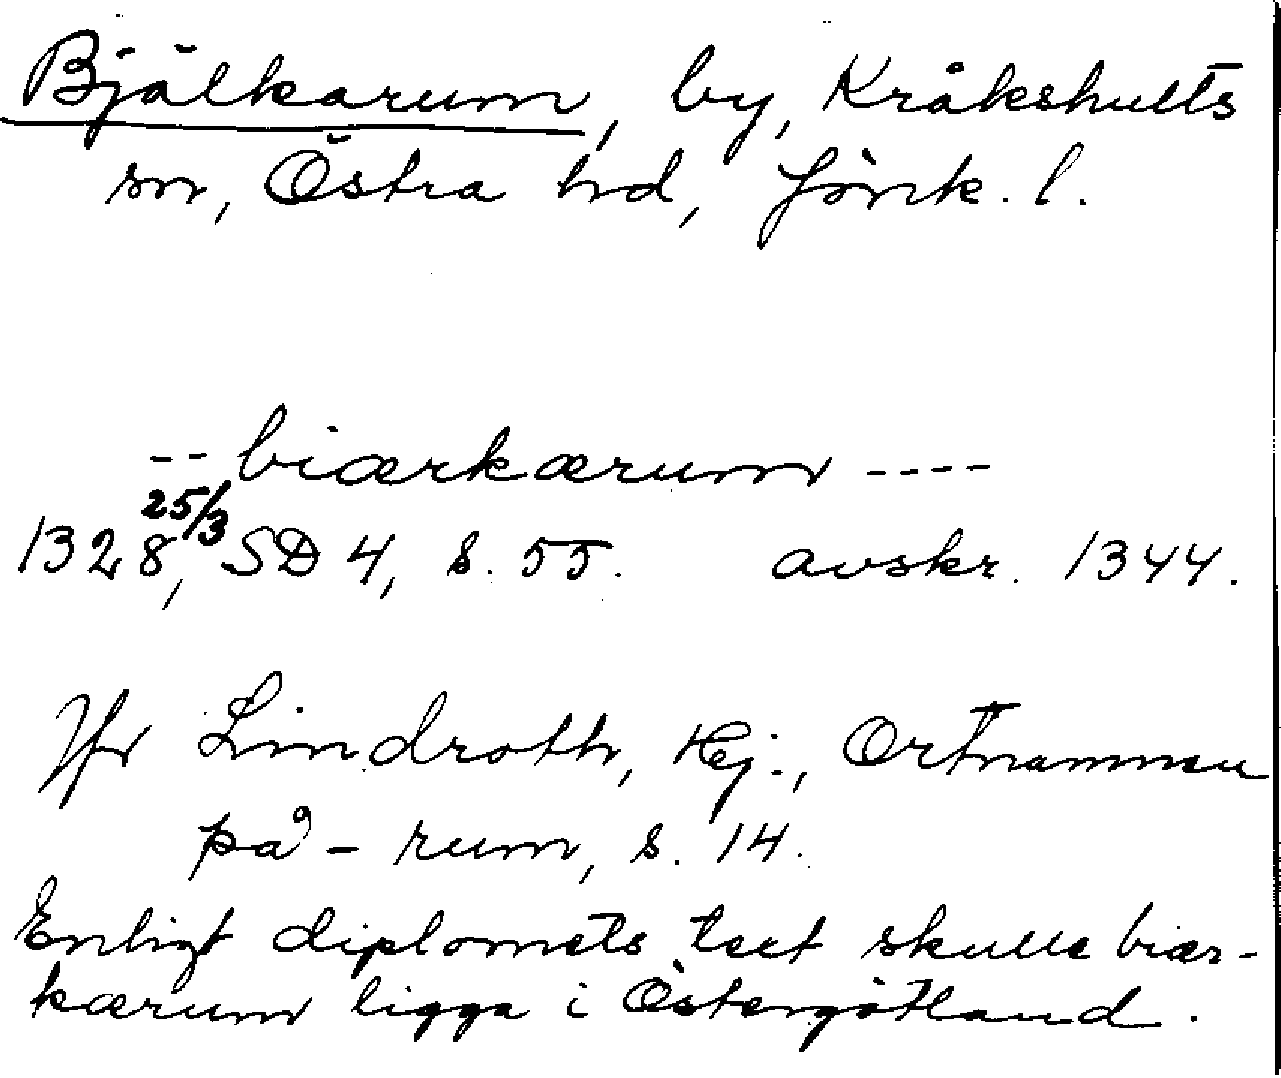 Bjälkarum, by, Kråkshults
sn, Östra hd, Jönk. l.
-- biærkærum ----
25/3
1328, SD 4, s. 55. avskr. 1344.
Jfr Lindroth, Hj., Ortnamnen
på -rum, s. 14.
Enligt diplomets text skulle biær-
kærum ligga i Östergötland.